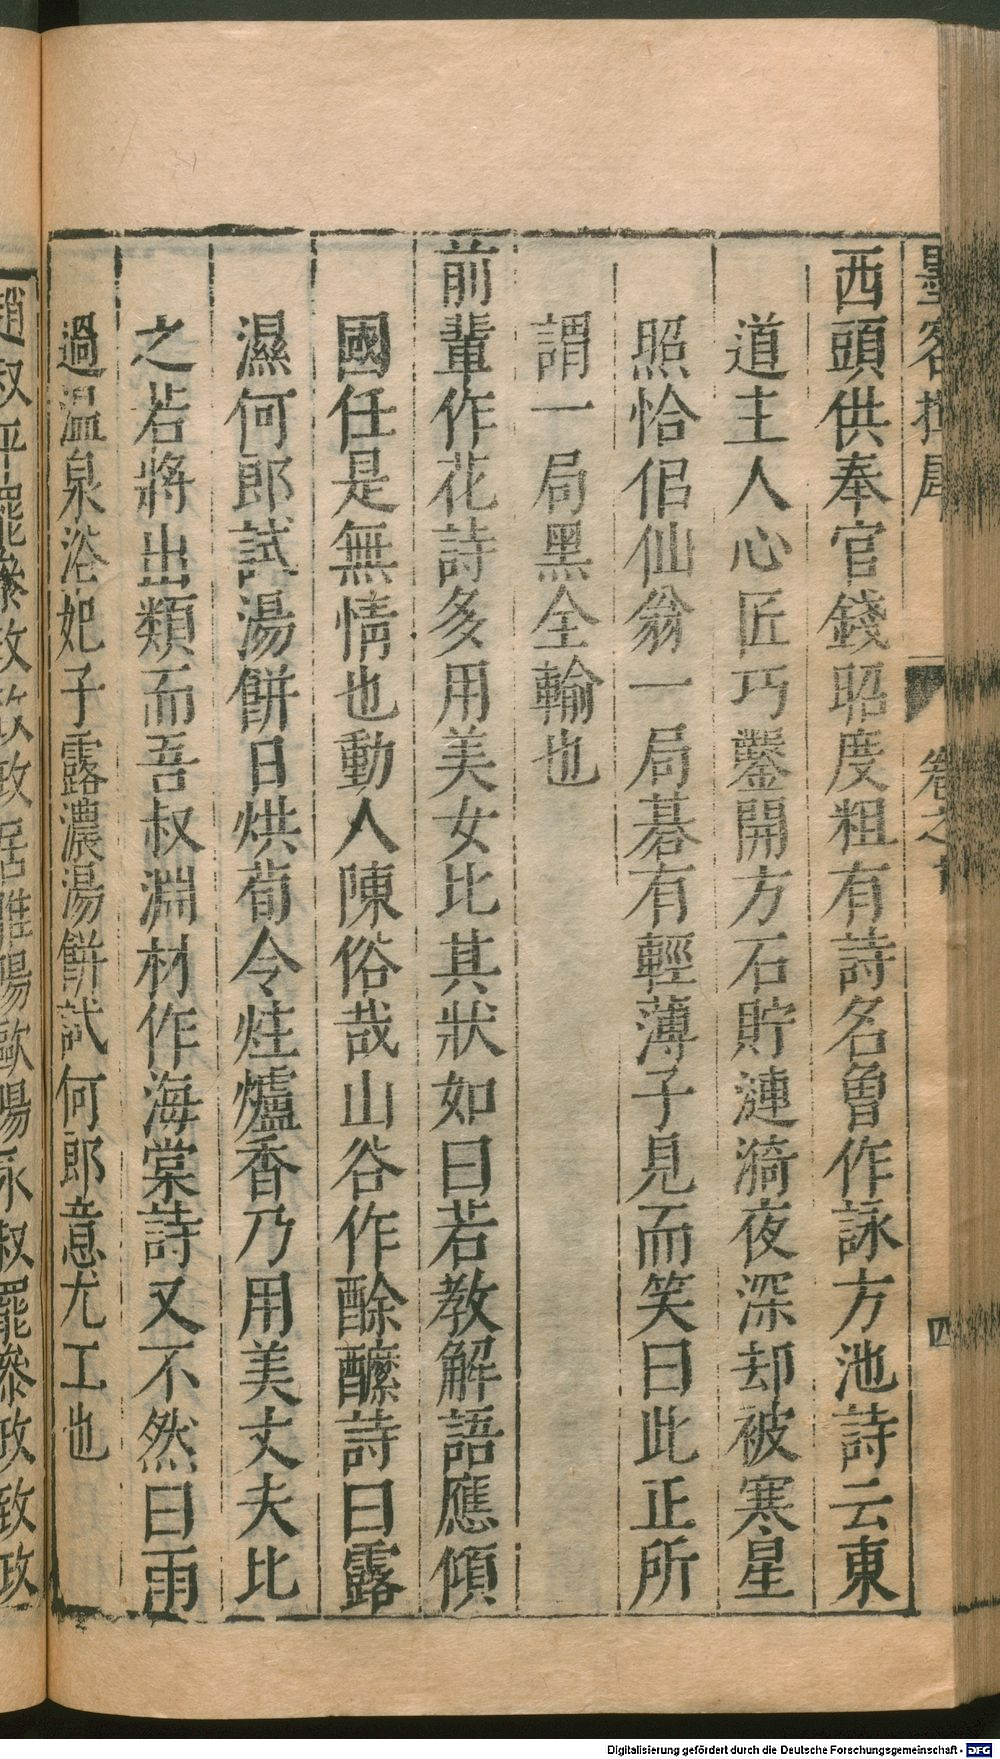 墨客揮犀
卷之
四
西頭供奉官錢昭度粗有詩名魯作詠方池詩云東
道主人心匠巧鑿開方石貯漣漪夜深却被寒星
照恰似仙翁一局碁有輕薄子見而笑曰此正所
謂一局黑全輸也
前輩作花詩多用美女比其狀如曰若教解語應傾
國任是無情也動人陳俗哉山谷作酴醾詩曰露
濕何郎試湯餅日烘荀令炷爐香乃用美丈夫比
之若將出類而吾叔淵材作海棠詩又不然曰雨
過温泉浴妃子露濃湯餅試何郎意尤工也
趙叔平罷叅政致政居睢陽歐陽永叔罷叅政致政
Digitalisierung gefördert durch die Deutsche Forschungsgemeinschaft - DFG